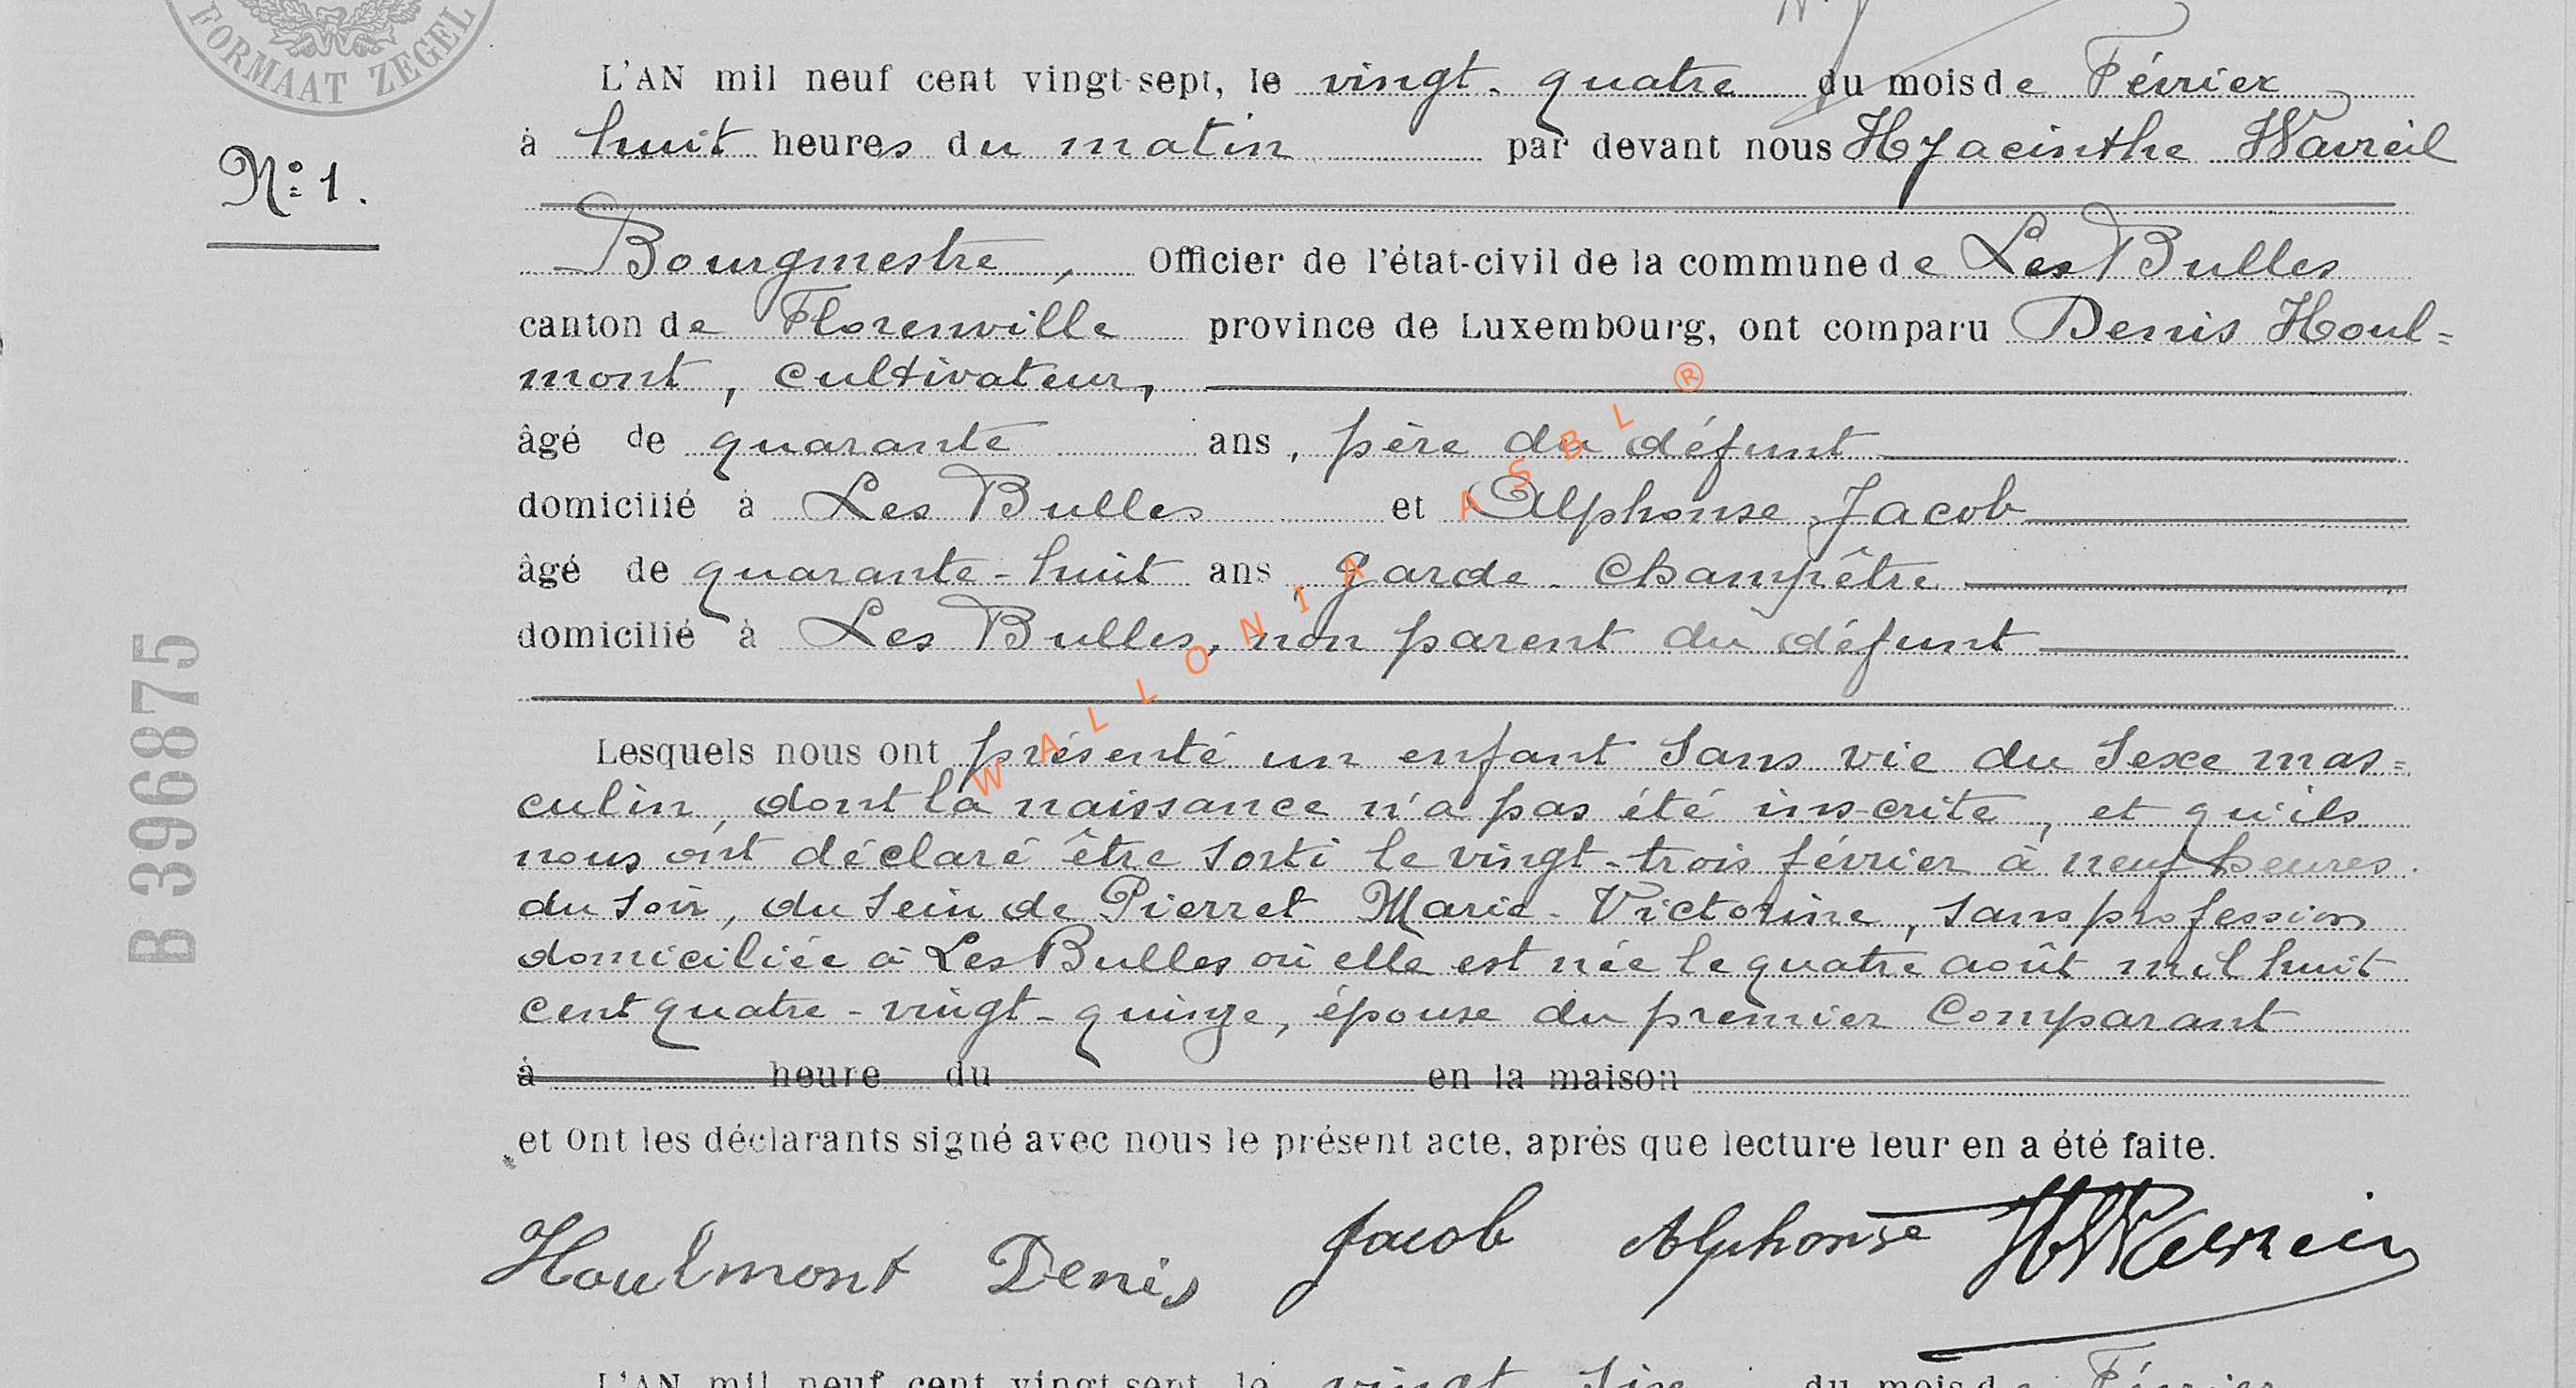 FORMAAT ZEGEL
L'AN mil neuf cent vingt-sept, le vingt-quatre du mois de Février
à huit heures du matin par devant nous Hyacinthe Wavreil
N° 1.
Bourgmestre, Officier de l'état-civil de la commune de Les Bulles
canton de Florenville province de Luxembourg, ont comparu Denis Houl=
mont, cultivateur,
âgé de quarante ans, père du défunt
domicilié à Les Bulles et Alphonse Jacob
âgé de quarante-huit ans, garde-champêtre
domicilié à Les Bulles, non parent du défunt
Lesquels nous ont présenté un enfant sans vie du sexe mas=
culin, dont la naissance n'a pas été inscrite, et qu'ils
nous ont déclaré être sorti le vingt-trois février à neuf heures
du soir, du sein de Pierret Marie-Victorine, sans profession
domiciliée à Les Bulles où elle est née le quatre août mil huit
cent quatre-vingt-quinze, épouse du premier comparant
à heure du en la maison
et ont les déclarants signé avec nous le présent acte, après que lecture leur en a été faite.
Houlmont Denis Jacob Alphonse
L'AN mil neuf cent vingt-sept, le vingt-six du mois de Février
B 396875
WALLONIA ASBL ®